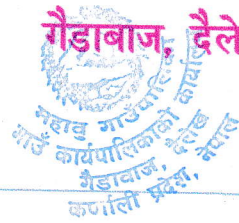 गैडाबाज, दैले
महावु गाउँपालिका
गाउँ कार्यपालिकाको कार्यालय
गैडावाज, दैलेख
कर्णाली प्रदेश, नेपाल